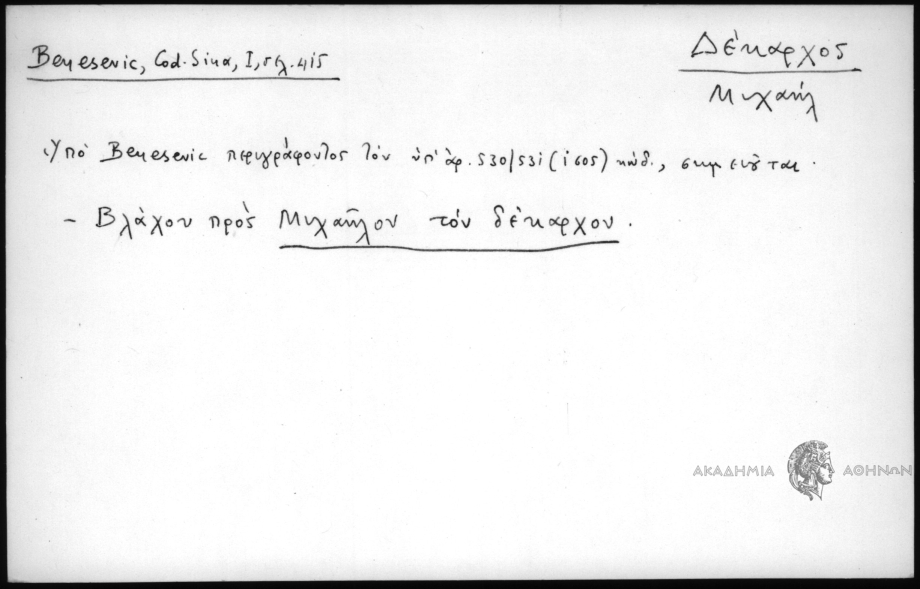 Benesevic, Cod. Sina, I, σελ. 415
Δέκαρχος
Μιχαήλ
Ὑπό Benesevic περιγράφοντος τόν ὑπ' ἀρ. 530/531 (1605) κώδ., σημειοῦται.
- Βλάχου πρὸς Μιχαῆλον τόν δέκαρχον.
ΑΚΑΔΗΜΙΑ ΑΘΗΝΩΝ